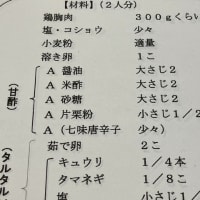 【材料】（２人分）
鶏胸肉　３００ｇくらい
塩・コショウ　少々
小麦粉　適量
溶き卵　１こ
（甘酢）
Ａ 醤油　大さじ２
Ａ 米酢　大さじ２
Ａ 砂糖　大さじ２
Ａ 片栗粉　小さじ１／２
Ａ （七味唐辛子　少々）
（タルタル
茹で卵　２こ
キュウリ　１／４本
タマネギ　１／８こ
塩　小さじ１／